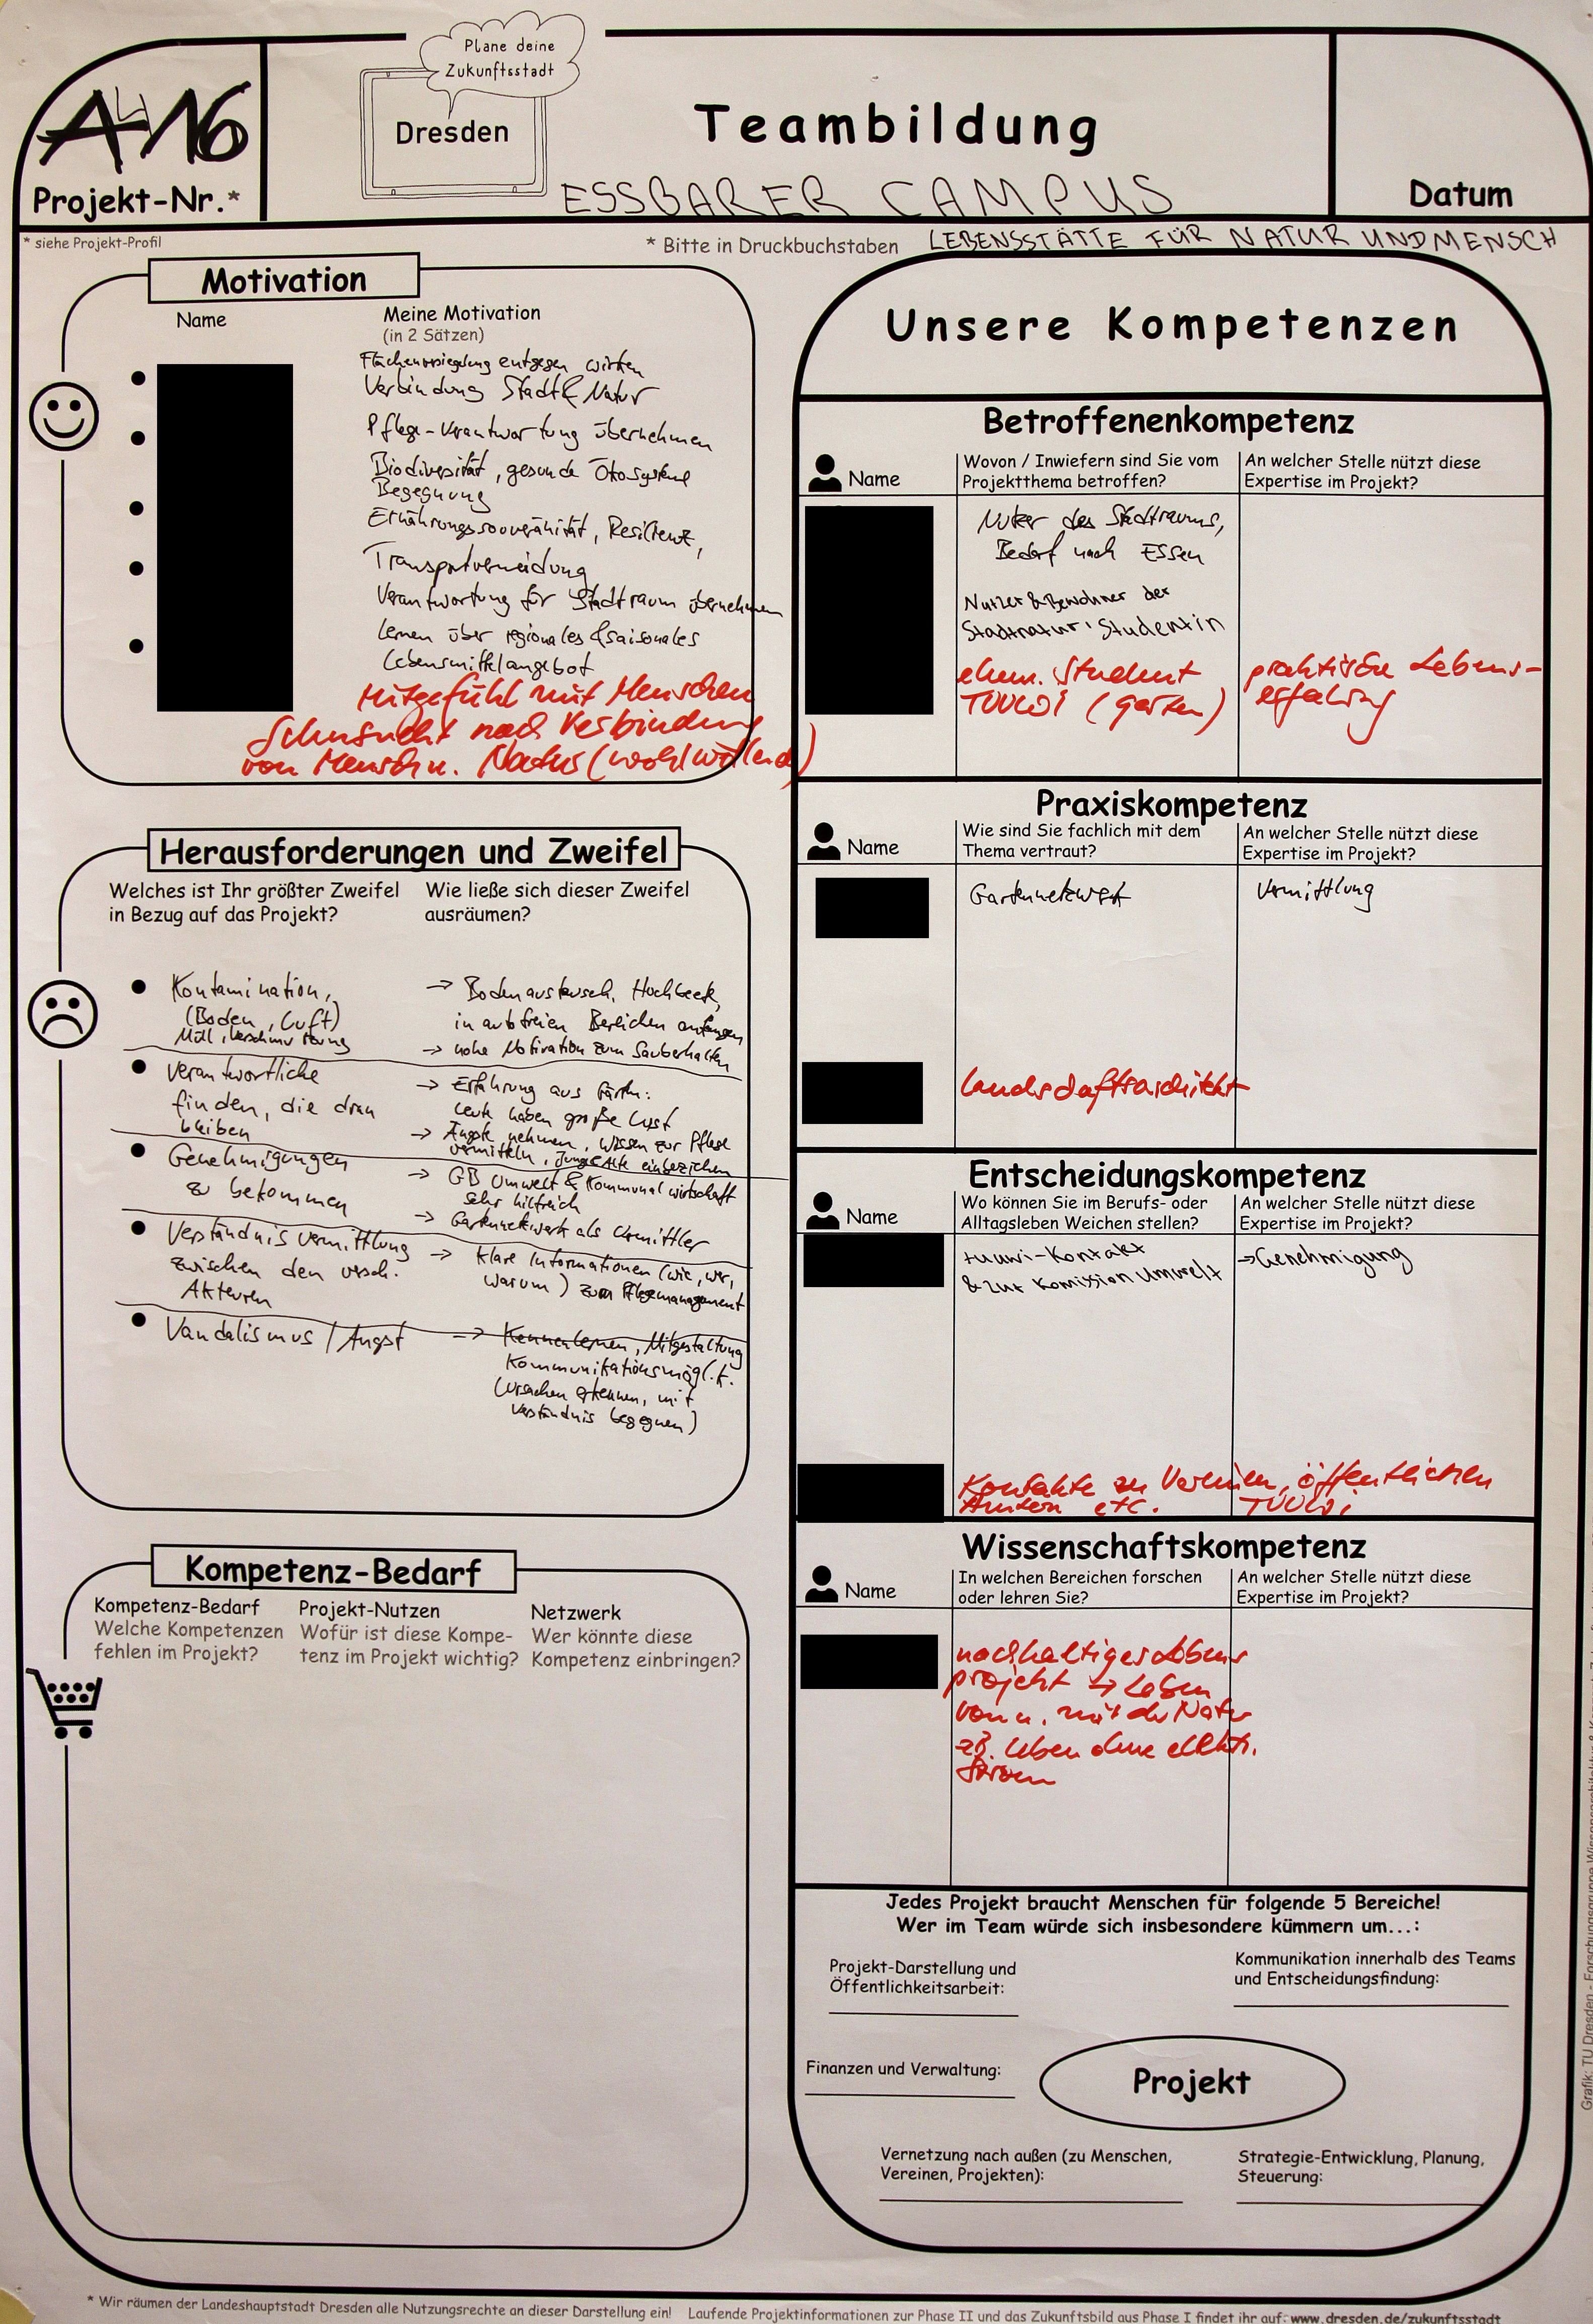 Plane deine
Zukunftsstadt
Dresden
Teambildung
A 16
Projekt-Nr.*
ESSBARER CAMPUS
Datum
* siehe Projekt-Profil
* Bitte in Druckbuchstaben
LEBENSSTÄTTE FÜR NATUR UND MENSCH
Motivation
Name
Meine Motivation
(in 2 Sätzen)
Flächenversiegelung entgegen wirken
Verbindung Stadt & Natur
Pflege-Verantwortung übernehmen
Biodiversität, gesunde Ökosysteme
Begegnung
Ernährungssouveränität, Resilienz,
Transportvermeidung
Verantwortung für Stadtraum übernehmen
Lernen über regionales & saisonales
Lebensmittelangebot
Mitgefühl mit Menschen
Sehnsucht nach Verbindung
von Mensch u. Natur (wohlwollend)
Herausforderungen und Zweifel
Welches ist Ihr größter Zweifel
in Bezug auf das Projekt?
Wie ließe sich dieser Zweifel
ausräumen?
Kontamination,
(Boden, Luft)
Müll, Verschmutzung
→ Bodenaustausch, Hochbeete,
in autofreien Bereichen anfangen
→ hohe Motivation zum Sauberhalten
Verantwortliche
finden, die dran
bleiben
→ Erfahrung aus Gärten:
Leute haben große Lust
→ Ängste nehmen, Wissen zur Pflege
vermitteln, Junge & Alte einbeziehen
Genehmigungen
zu bekommen
→ GB Umwelt & Kommunalwirtschaft
sehr hilfreich
→ Gartennetzwerk als Vermittler
Verständnis vermittlung
zwischen den versch.
Akteuren
→ klare Informationen (wie, wer,
warum) zum Pflegemanagement
Vandalismus / Angst
→ Kennenlernen, Mitgestaltung
Kommunikationsmöglk.
(Ursachen erkennen, mit
Verständnis begegnen)
Kompetenz-Bedarf
Kompetenz-Bedarf
Welche Kompetenzen
fehlen im Projekt?
Projekt-Nutzen
Wofür ist diese Kompe-
tenz im Projekt wichtig?
Netzwerk
Wer könnte diese
Kompetenz einbringen?
Unsere Kompetenzen
Betroffenenkompetenz
Name
Wovon / Inwiefern sind Sie vom
Projektthema betroffen?
An welcher Stelle nützt diese
Expertise im Projekt?
Nutzer des Stadtraums,
Bedarf nach Essen
Nutzer & Bewohner der
Stadtnatur, Studentin
ehem. Student
TUUWI (Garten)
praktische Lebens-
erfahrung
Praxiskompetenz
Name
Wie sind Sie fachlich mit dem
Thema vertraut?
An welcher Stelle nützt diese
Expertise im Projekt?
Gartennetzwerk
Vermittlung
Landschaftsarchitekt
Entscheidungskompetenz
Name
Wo können Sie im Berufs- oder
Alltagsleben Weichen stellen?
An welcher Stelle nützt diese
Expertise im Projekt?
tuuwi-Kontakt
& zur Komission Umwelt
→ Genehmigung
Kontakte zu Vereinen, öffentlichen
Ämtern etc. TUUWI
Wissenschaftskompetenz
Name
In welchen Bereichen forschen
oder lehren Sie?
An welcher Stelle nützt diese
Expertise im Projekt?
nachhaltiges Lebens
projekt → Leben
von u. mit der Natur
zB. Leben ohne elektr.
Strom
Jedes Projekt braucht Menschen für folgende 5 Bereiche!
Wer im Team würde sich insbesondere kümmern um...:
Projekt-Darstellung und
Öffentlichkeitsarbeit:
Kommunikation innerhalb des Teams
und Entscheidungsfindung:
Finanzen und Verwaltung:
Projekt
Vernetzung nach außen (zu Menschen,
Vereinen, Projekten):
Strategie-Entwicklung, Planung,
Steuerung:
* Wir räumen der Landeshauptstadt Dresden alle Nutzungsrechte an dieser Darstellung ein! Laufende Projektinformationen zur Phase II und das Zukunftsbild aus Phase I findet ihr auf: www.dresden.de/zukunftsstadt
Grafik: TU Dresden - Forschungsgruppe Wissensarchitektur